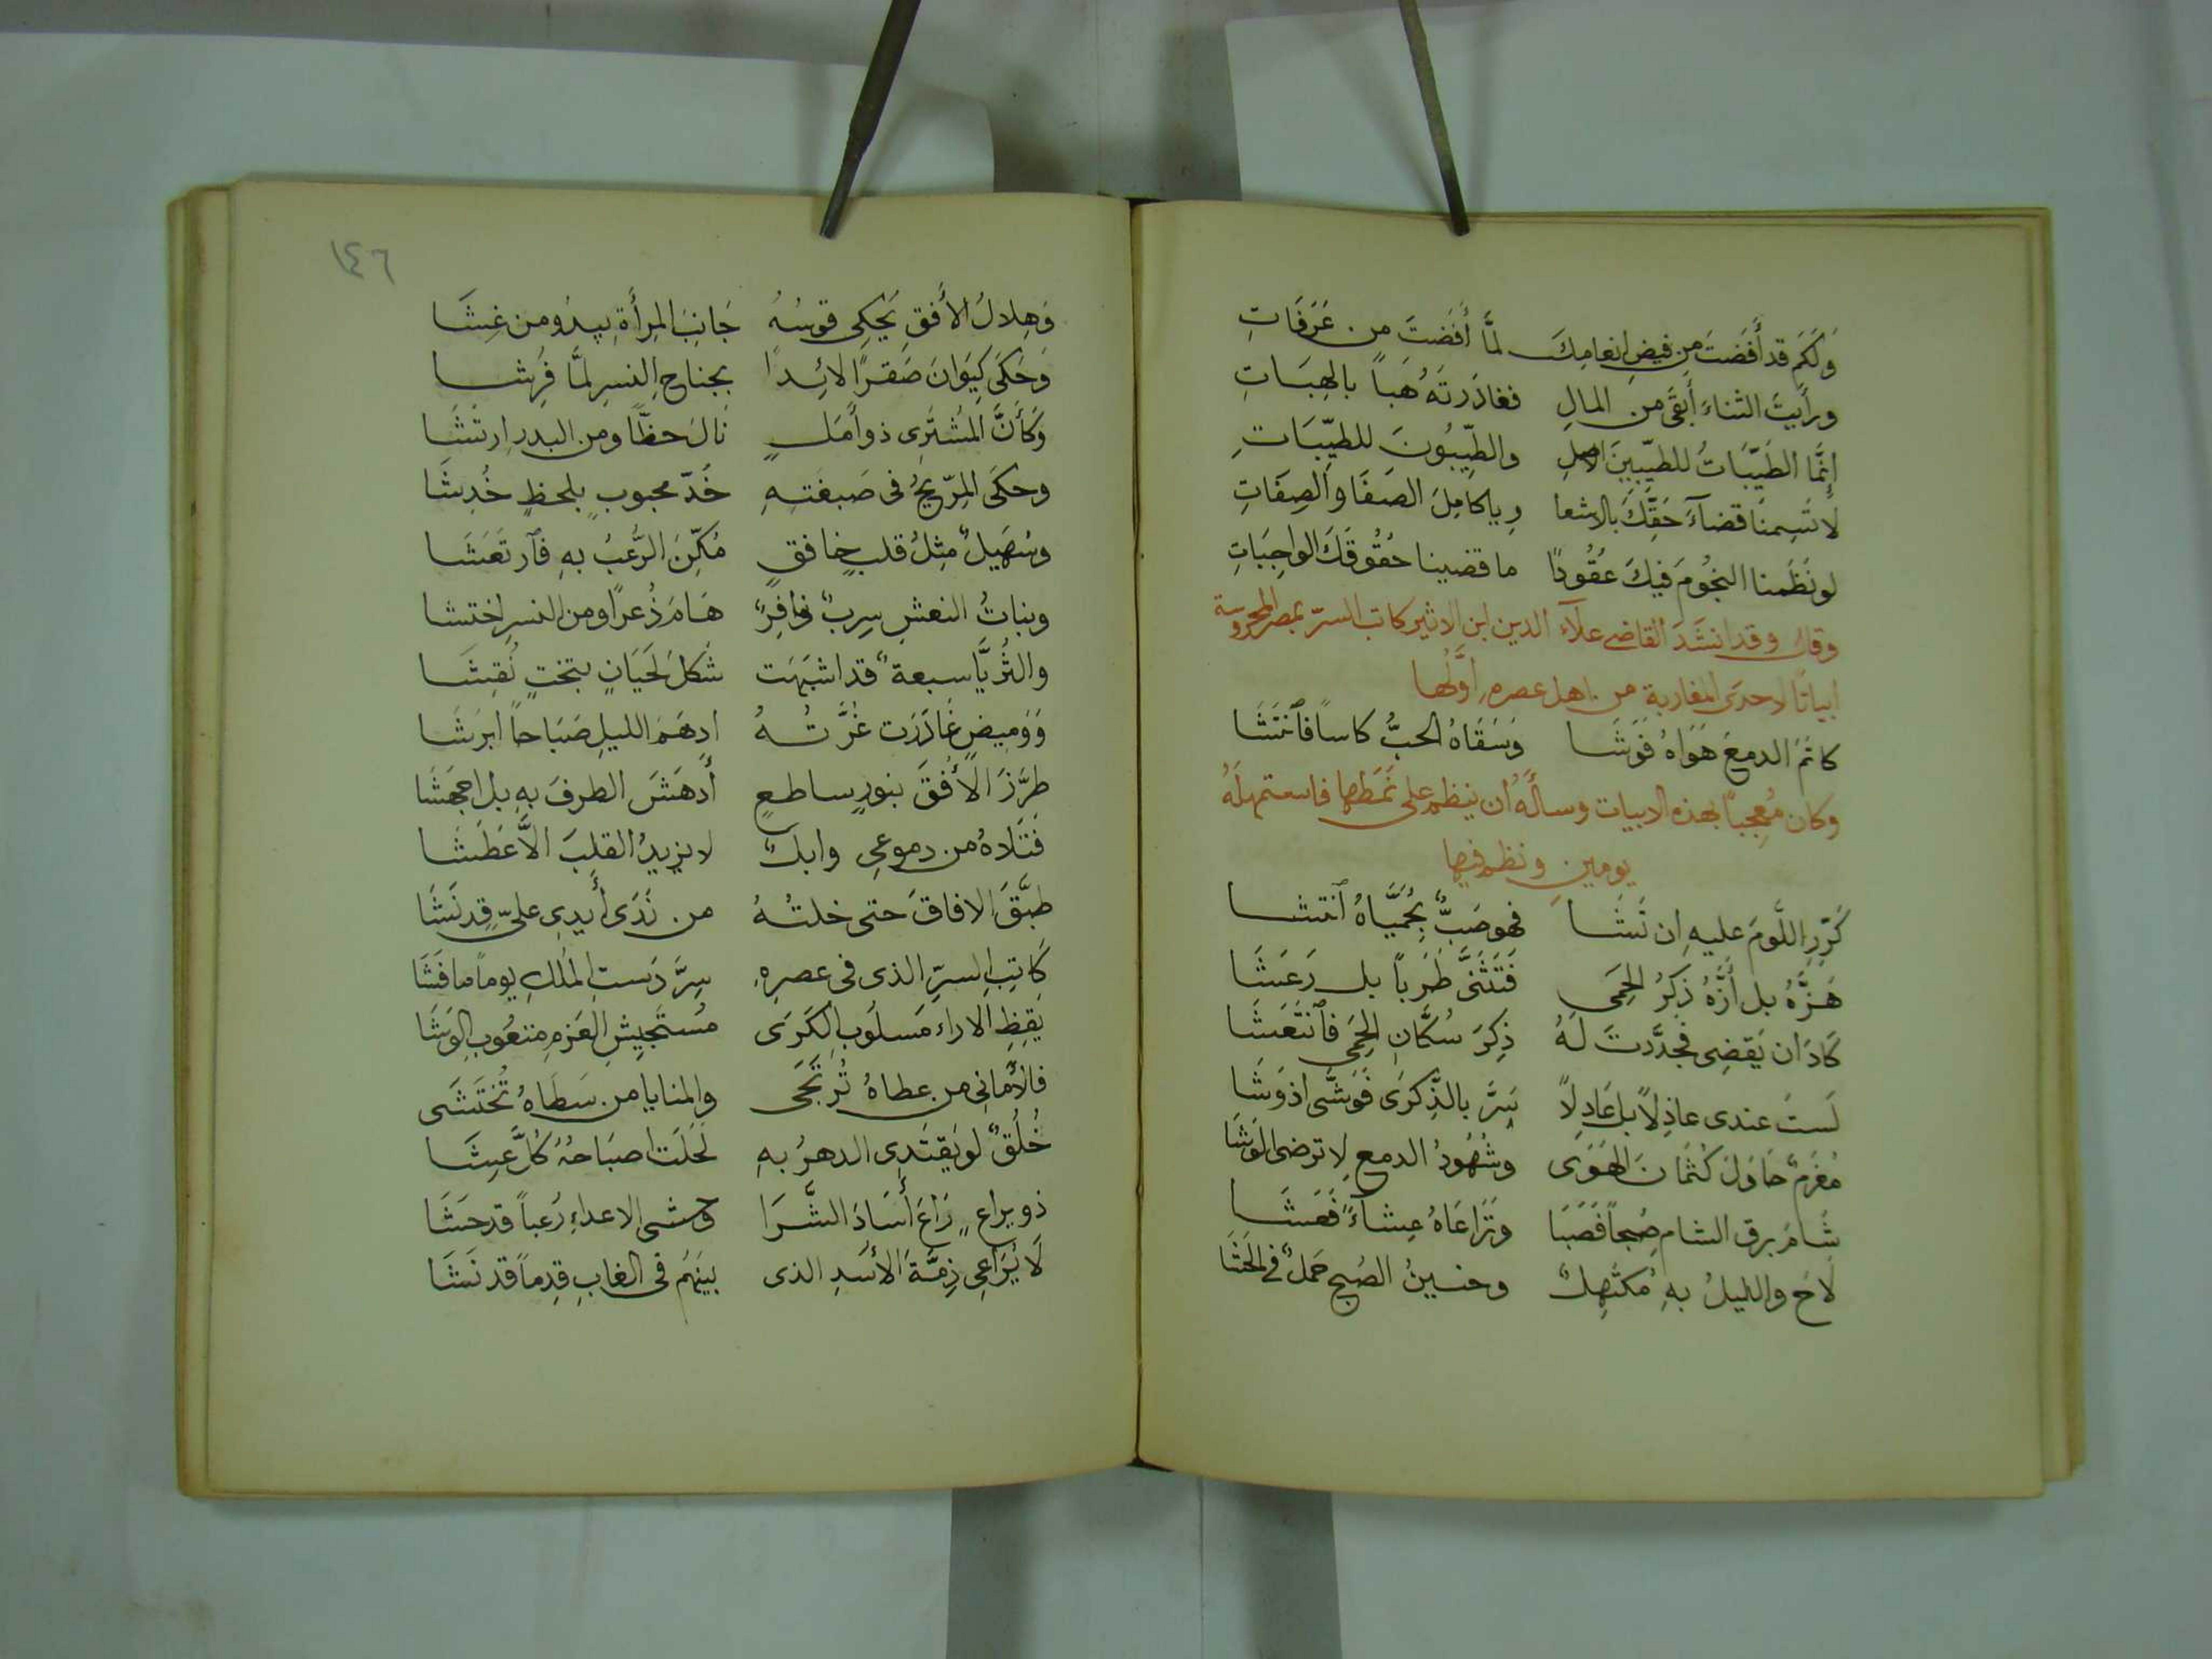 وَلَكَم قد أَفَضتَ مِن فيضِ انعامِكَ لمَّا أَفَضتَ من عَرَفَاتِ
ورأيتَ الثناءَ أَبقَى من المالِ فغادَرتَهُ هَباً بالهِبَاتِ
إنَّما الطَيّبَاتُ للطيّبينَ الاصلِ والطّيِبُونَ للطيِّبَاتِ
لا تَسِمنا قضآءَ حَقِّكَ بالاشعا رِ ياكامِلَ الصَفَا والصِفَاتِ
لو نَظَمنا النجُومَ فيكَ عُقُودًا ما قضينا حُقُوقَكَ الواجِبَاتِ
وقال وقد انشَدَ القاضى علآء الدين ابن الاثير كاتب السرّ بمصر المحروسة
ابياتًا لاحدى المغاربة من اهل عصره اَوَّلُها
كاتمَ الدمعَ هَوَاهُ فَوَشَا وَسَقَاهُ الحبُّ كاساً فَانتَشَا
وكان مُعجباً بهذه الابيات وسأَلَهُ ان ينظم على نَمَطِها فاستمهلَهُ
يومينِ ونظم فيها
كَرّرِ اللَّومَ عليهِ ان تَشَا فهو صَبٌّ بِحُمَيَّاهُ انتشا
هَزَّهُ بل أَزَّهُ ذَكرُ الحِمَى فَتَثَنَّى طَرَباً بل رَعَشَا
كادَ ان يَقضِى فجدَّدتَ لَهُ ذِكرَ سُكَّانِ الحِمَى فَانتَعَشَا
لَستَ عندى عاذِلاً بل عَادِلاً سَرَّ بالذِّكرَى فَوَشَّى اذ وَشَا
مُغرَمٌ حَاوَلَ كُتمَانَ الهَوَى وشُهُودُ الدمعِ لا ترضى الوَشَا
شَامَ برق الشامِ صُبحاً فَصَبَا وَتَرَاعَاهُ عِشآءً فَعَشَا
لاحَ والليلُ بهِ مُكتَهِلٌ وحنسينُ الصُبحِ حَملٌ فى الحَشَا
١٤٦
وَهِلالُ الأَفقِ يَحكِى قوسُهُ جَانِبَ المِرأَةِ يبدُو من غِشَا
وَحَكَى كَيَوانَ صَقرًا لائِدًا بجناحِ النسرِ لمَّا فُرِشا
وكأَنَّ المُشتَرِى ذو أَمَلٍ نَالَ حظًّا ومن البدرِ ارتشَا
وحكَى المرّيخُ فى صَبغتِهِ خَدّ محبوبٍ بلحظٍ خُدِشَا
وسُهَيلٌ مِثلُ قلبٍ خافقٍ مُكِّنَ الرُّعبُ بهِ فَارتَعَشَا
وبناتُ النعشِ سِربٌ نَافِرٌ هَامَ ذُعرًا ومن النسرِ اختشا
والثُرَيَّا سبعةٌ قد اشبَهَت شكلَ لَحيَانٍ بتختٍ نُقِشَا
وَوَميضٍ غَادَرَت غُرَّتُهُ ادهَمَ الليلِ صَبَاحاً ابرَشَا
طرَّزَ الأُفقَ بنورٍ ساطعٍ أَدهَشَ الطرفَ بهِ بل اجهَشَا
فَتَلاهُ من دموعى وابلٌ لا يزيدُ القلبَ الاَّ عَطَشَا
طبَّقَ الافاقَ حتى خلتُهُ من نَدَى أَيدى علىّ قد نَشَا
كَاتِبِ السِرِّ الذى فى عصرِهِ سِرَّ دَستِ المُلكِ يوماً ما فَشَا
يَقِظِ الاراء مَسلُوبِ الكَرَى مُستَجيشِ العَزمِ متعُوبِ الوَشَا
فالأَمَانِى من عطاهُ تُرتَجَى والمنايا من سَطَاهُ تُختَشَى
خُلُقٌ لو يَقتَدِى الدهرُ بهِ لَحَلَت اصبَاحُهُ كلَّ عِشَا
ذو يراعٍ رَاعَ أَسَادَ الشَّرَا وحشى الاعداءِ رُعباً قد حشَا
لا يُرَاعِى ذِمَّةَ الأَسَدِ الذى بينَهُم فى الغابِ قِدماً قد نَشَا